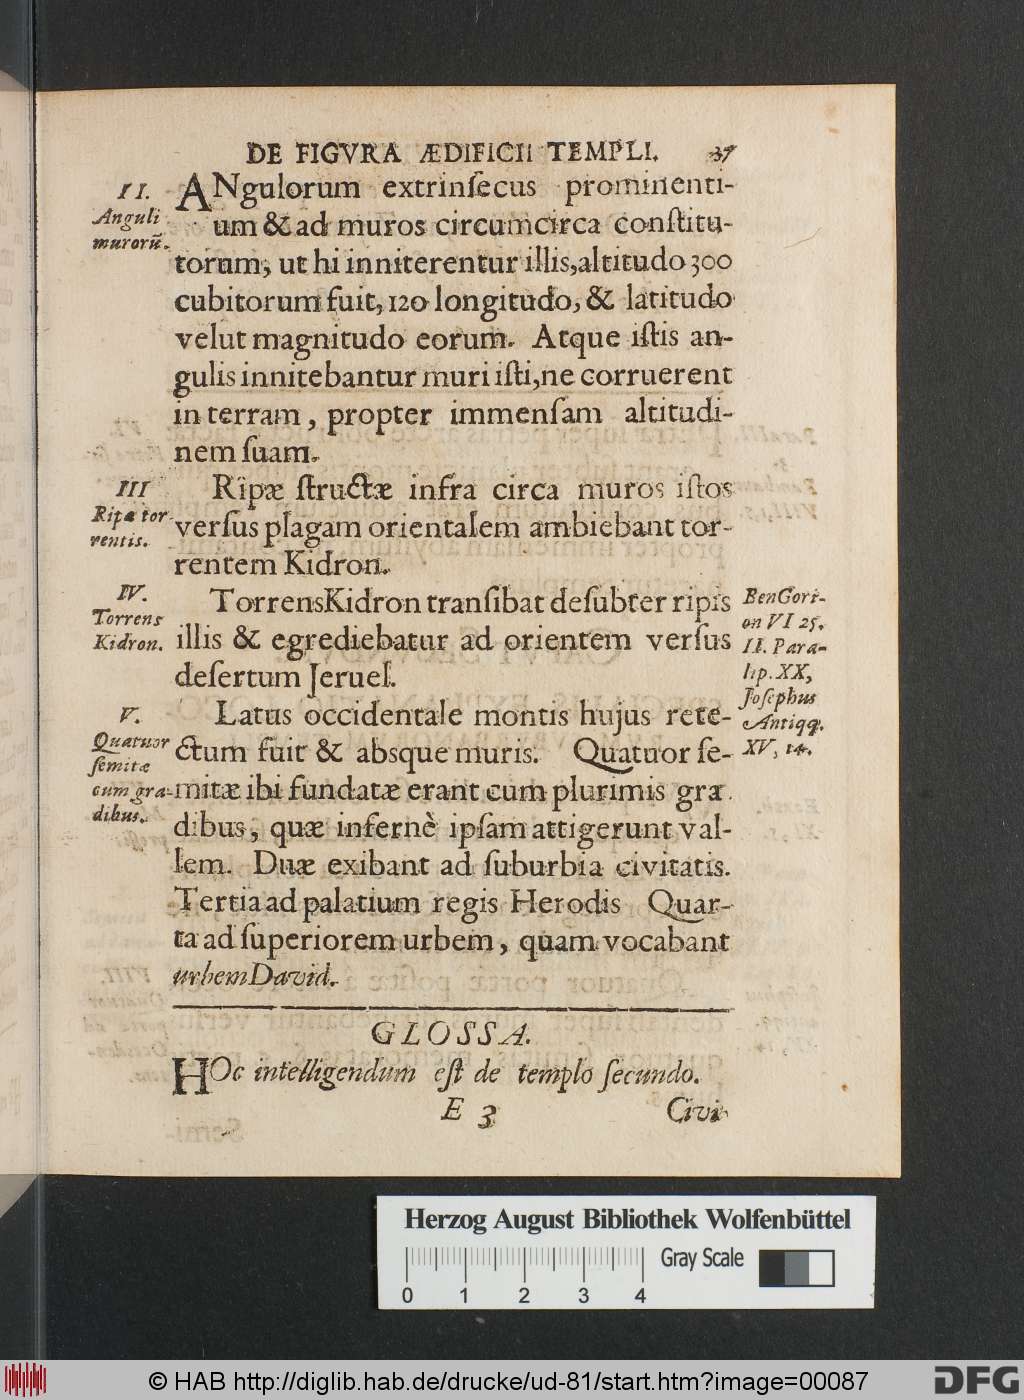 DE FIGVRA ÆDIFICII TEMPLI. 37
II.
Anguli
murorū.
ANgulorum extrinſecus prominenti-
um & ad muros circumcirca conſtitu-
torum, ut hi inniterentur illis, altitudo 300
cubitorum fuit, 120 longitudo, & latitudo
velut magnitudo eorum. Atque iſtis an-
gulis innitebantur muri iſti, ne corruerent
in terram, propter immenſam altitudi-
nem ſuam.
III
Ripæ tor-
rentis.
Ripæ ſtructæ infra circa muros iſtos
verſus plagam orientalem ambiebant tor-
rentem Kidron.
IV.
Torrens
Kidron.
Torrens Kidron tranſibat deſubter ripis
illis & egrediebatur ad orientem verſus
deſertum Jeruel.
Ben Gori-
on VI 25.
II. Para-
lip. XX,
Joſephus
Antiqq.
XV, 14.
V.
Quatuor
ſemitæ
cum gra-
dibus.
Latus occidentale montis hujus rete-
ctum fuit & absque muris. Quatuor ſe-
mitæ ibi fundatæ erant cum plurimis gra
dibus, quæ infernè ipſam attigerunt val-
lem. Duæ exibant ad ſuburbia civitatis.
Tertia ad palatium regis Herodis Quar-
ta ad ſuperiorem urbem, quam vocabant
urbem David.
GLOSSA.
HOc intelligendum eſt de templo ſecundo.
E 3 Civi-
Herzog August Bibliothek Wolfenbüttel
Gray Scale
0 1 2 3 4
© HAB http://diglib.hab.de/drucke/ud-81/start.htm?image=00087
DFG